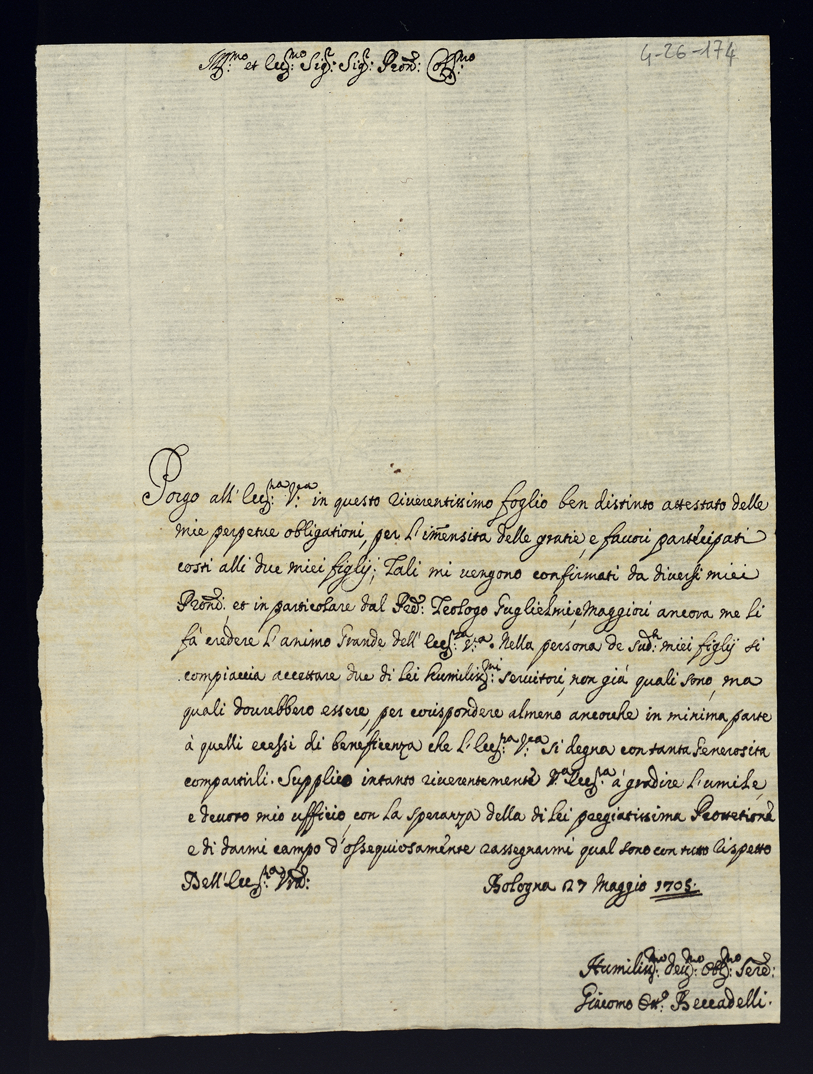 4-26-174
Ill:mo et ecc:mo Sig:r Sig:r Pron: Col:mo
Porgo all' ecc:za V:ra in questo riverentissimo foglio ben distinto attestato delle
mie perpetue obligationi, per l'imensita delle gratie, e favori partecipati
costi alli due miei figlij; Tali mi vengono confirmati da diversi miei
Proni, et in particolare dal Pre: Teologo Guglielmi, e Maggiori ancora me li
fà credere l'animo Grande dell' ecc:za V:a. Nella persona de sud:i miei figlij si
compiaccia accettare due di lei humiliss:mi servitori, non già quali sono, ma
quali dovrebbero essere, per corispondere almeno ancorche in minima parte
à quelli ecessi di beneficenza che l'ecc:za V:ra si degna con tanta Generosita
compartirli. Supplico intanto riverentemente V:a ecc:za à gradire l'umile,
e devoto mio ufficio, con la speranza della di lei pregiatissima Protetione
e di darmi campo d'ossequiosamente rassegnarmi qual sono con tutto rispetto
Dell' ecc:za Vra: Bologna 27 Maggio 1705.
Humiliss:mo dev:mo obl:mo Serre:
Giacomo Beccadelli.